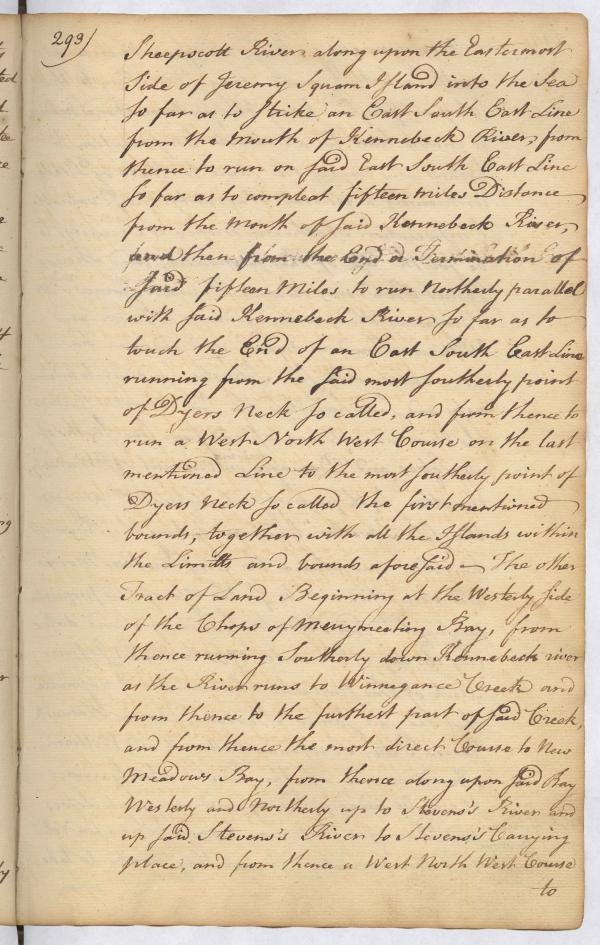 293)
Sheepscott River along upon the Eastermost
Side of Jeremy Squam Island into the Sea
so far as to strike an East South East Line
from the Mouth of Kennebeck River, from
thence to run on said East South East Line
so far as to compleat fifteen Miles Distance
from the Mouth of said Kennebeck River,
and then from the End or Termination of
said fifteen Miles to run Northerly parallel
with said Kennebeck River so far as to
touch the End of an East South East Line
running from the said most southerly point
of Dyers Neck so called, and from thence to
run a West North West Course on the last
mentioned Line to the most southerly point of
Dyers Neck so called the first mentioned
bounds, together with all the Islands within
the Limitts and bounds aforesaid – The other
Tract of Land Beginning at the Westerly side
of the Chops of Merrymeeting Bay, from
thence running Southerly down Kennebeck river
as the River runs to Winnegance Creek and
from thence to the furthest part of said Creek,
and from thence the most direct Course to New
Meadows Bay, from thence along upon said Bay
Westerly and Northerly up to Stevens's River and
up said Stevens's River to Stevens's Carrying
place, and from thence a West North West Course
to